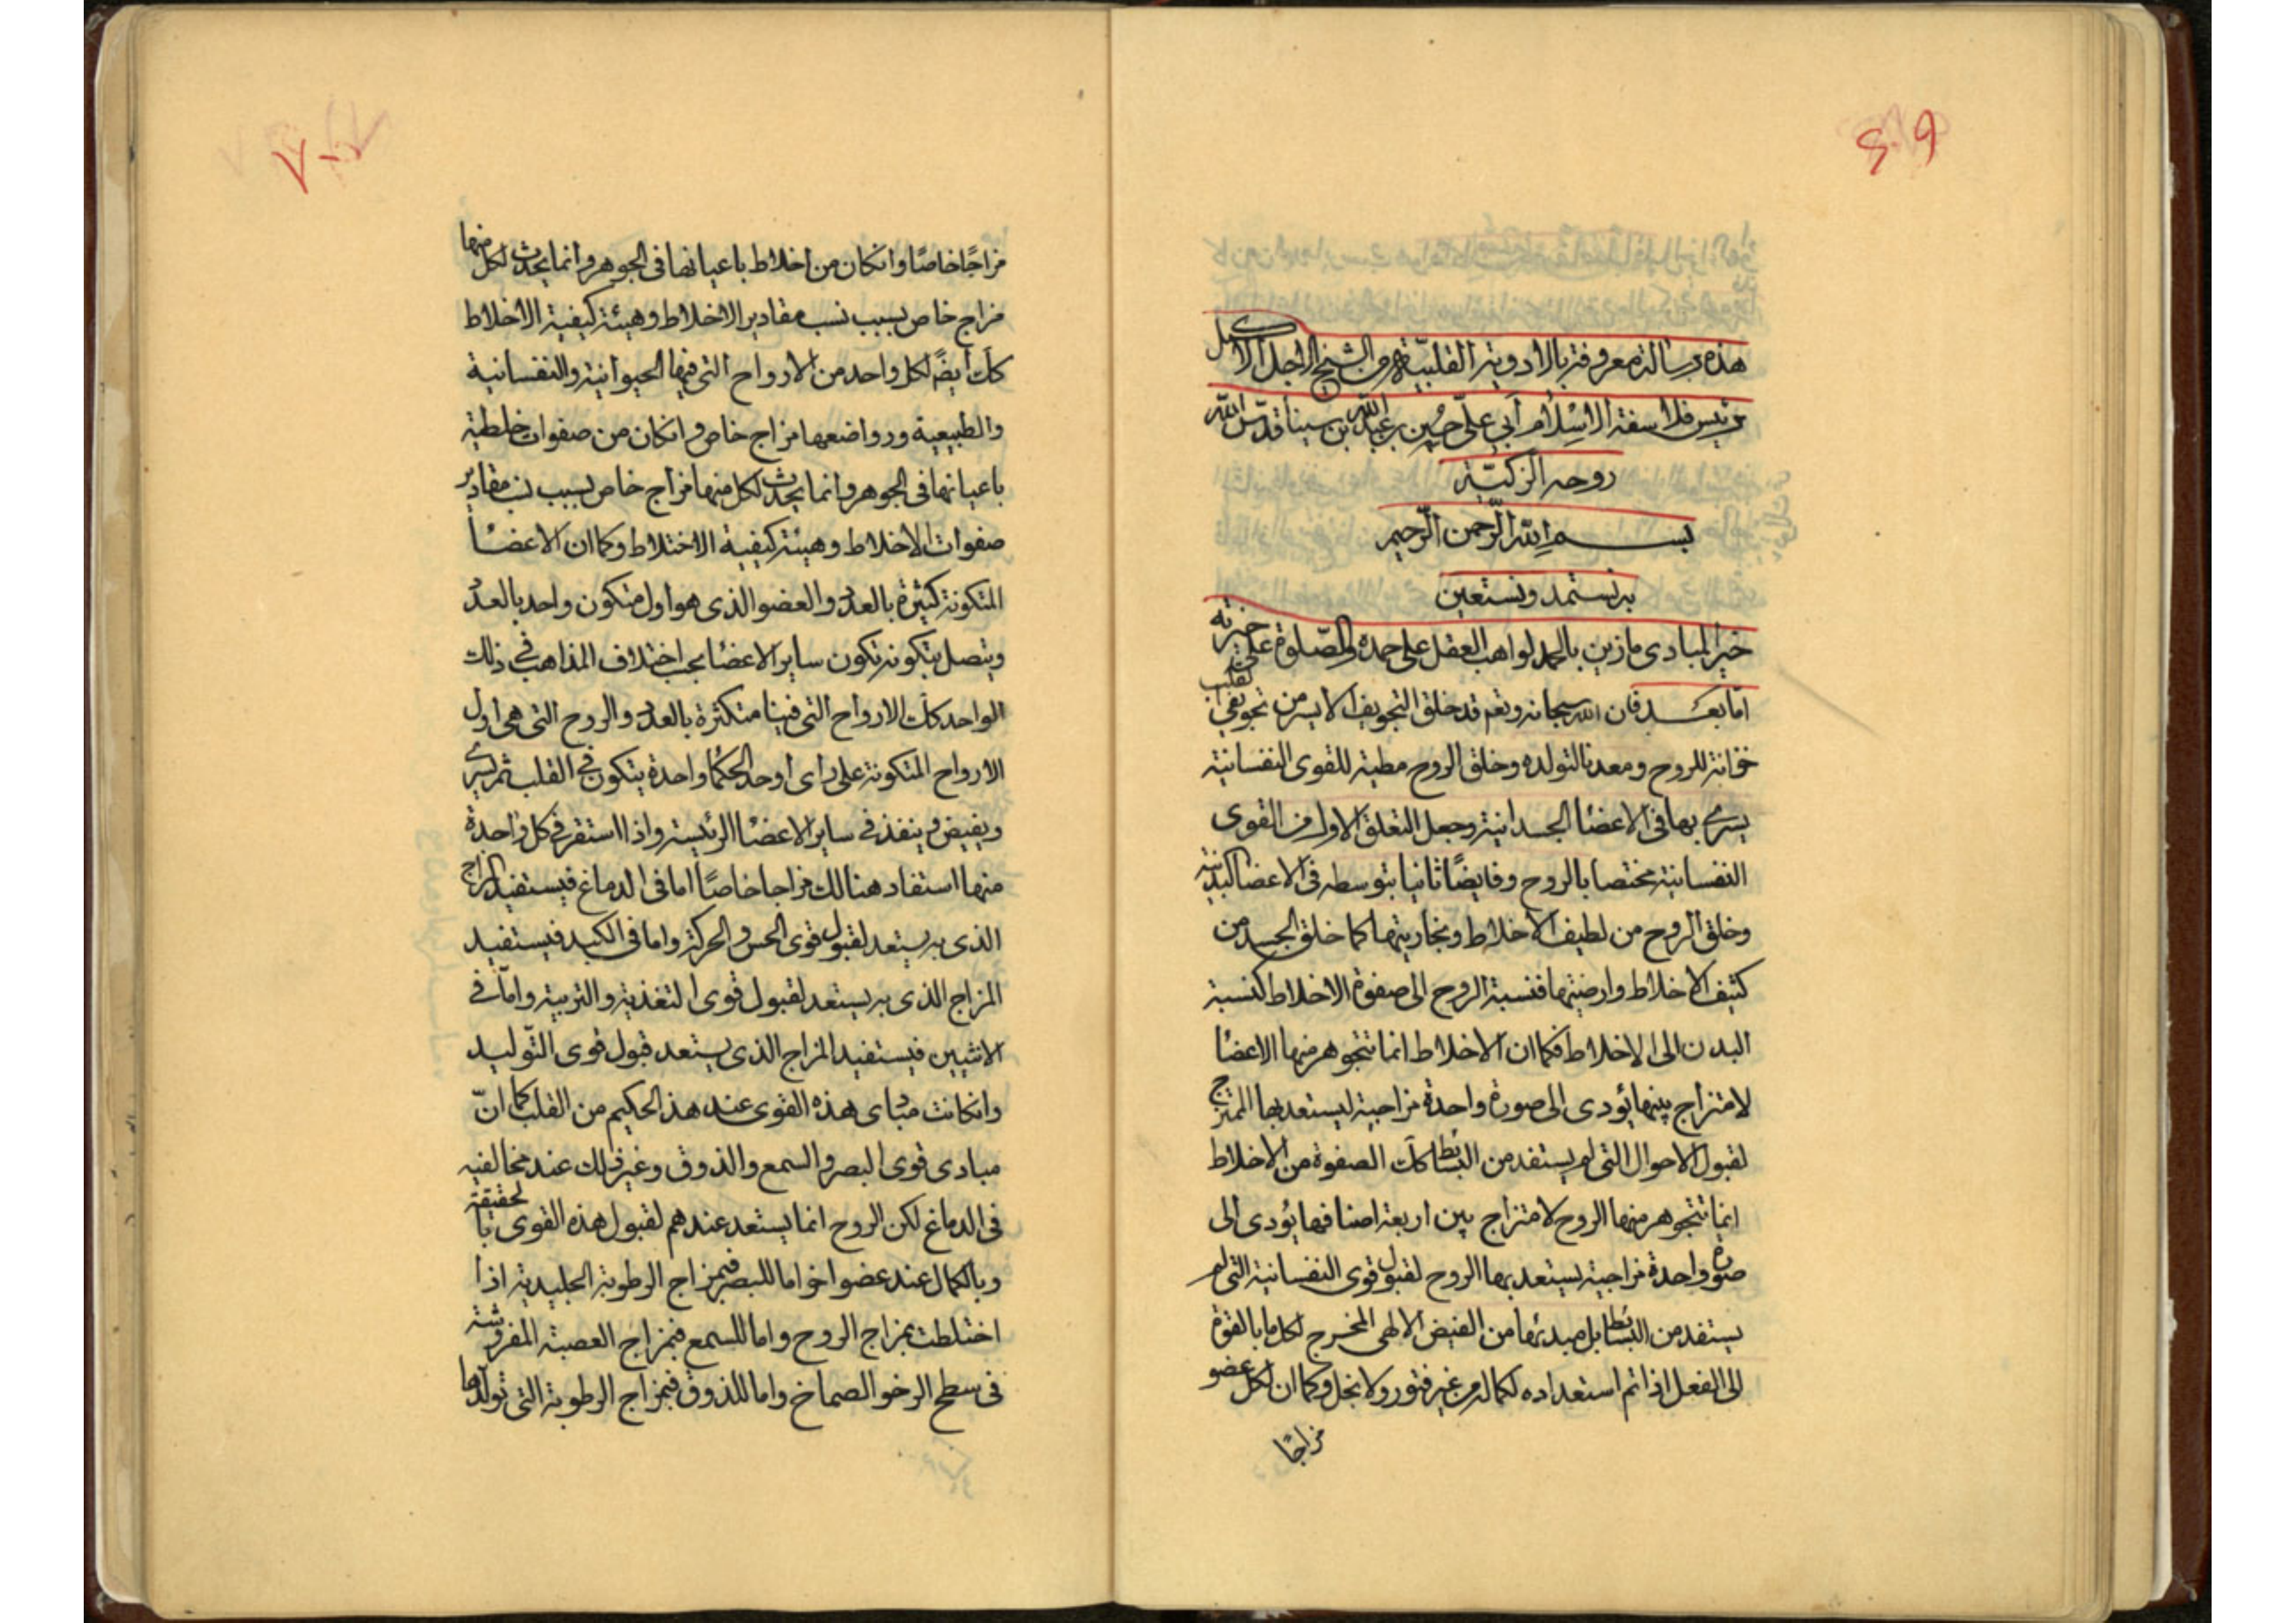 هذه رسالة معروفة بالادوية القلبية من الشيخ الاجل الاكمل
رئيس فلاسفة الاسلام ابي علي حسين بن عبد الله بن سينا قدس الله
روحه الزكية
بسم الله الرحمن الرحيم
به نستمد ونستعين
خير المبادى ما زين بالحمد لواهب العقل على حمده والصلوة على خيرته
اما بعد فان الله سبحانه وتعم قد خلق التجويف الايسر من تجويفي القلب
خزانة للروح ومعدنا لتولده وخلق الروح مطية للقوى النفسانية
يسرى بها فى الاعضا الجسدانية وجعل التعلق الاول من القوى
النفسانية مختصا بالروح وفايضًا ثانيا بتوسطه فى الاعضا البدنية
وخلق الروح من لطيف الاخلاط وبخاريتها كما خلق الجسد من
كثيف الاخلاط وارضيتها فنسبة الروح الى صفوة الاخلاط كنسبة
البدن الى الاخلاط فكما ان الاخلاط انما تتجوهر منها الاعضا
لامتزاج بينها يؤدى الى صورة واحدة مزاجية ليستعد بها الممتزج
لقبول الاحوال التى لم يستفد من البسائط كك الصفوة من الاخلاط
انما تتجوهر منها الروح لامتزاج بين اربعة اصنافها يؤدى الى
صورة واحدة مزاجية يستعد بها الروح لقبول قوى النفسانية التى لم
يستفد من البسائط بل مبدئها من الفيض الالهى المخرج لكل ما بالقوة
الى الفعل اذا تم استعداده لكماله من غير فتور ولا بخل وكما ان لكل عضو
مزاجًا
مزاجًا خاصًا وانكان من اخلاط باعيانها فى الجوهر وانما يحدث لكل منها
مزاج خاص بسبب نسب مقادير الاخلاط وهيئة كيفية الاخلاط
كك ايضًا لكل واحد من الارواح التى فيها الحيوانية والنفسانية
والطبيعية ورواضعها مزاج خاص وانكان من صفوات خلطية
باعيانها فى الجوهر وانما يحدث لكل منها مزاج خاص بسبب نسب مقادير
صفوات الاخلاط وهيئة كيفية الاختلاط وكما ان الاعضا
المتكونة كثيرة بالعدد والعضو الذى هو اول متكون واحد بالعدد
ويتصل بتكونه تكون ساير الاعضا بحب اختلاف المذاهب فى ذلك
الواحد كك الارواح التى فينا متكثرة بالعدد والروح التى هى اول
الارواح المتكونة على راى اوحد الحكما واحدة يتكون فى القلب ثم يسرى
ويفيض وينفذ فى ساير الاعضا الرئيسة واذا استقر فى كل واحدة
منها استفاد هنالك مزاجا خاصًا اما فى الدماغ فيستفيد المزاج
الذى به يستعد لقبول قوى الحس والحركة واما فى الكبد فيستفيد
المزاج الذى به يستعد لقبول قوى التغذية والتربية واما فى
الانثيين فيستفيد المزاج الذى يستعد قبول قوى التوليد
وانكانت مبادى هذه القوى عند هذ الحكيم من القلب كما ان
مبادى قوى البصر والسمع والذوق وغير ذلك عند مخالفيه
فى الدماغ لكن الروح انما يستعد عندهم لقبول هذه القوى بالحقيقة
وبالكمال عند عضو اخر اما للبصر فبمزاج الرطوبة الجليدية اذا
اختلطت بمزاج الروح واما للسمع فبمزاج العصبة المفروشة
فى سطح الرخو الصماخ واما للذوق فبمزاج الرطوبة التى تولدها